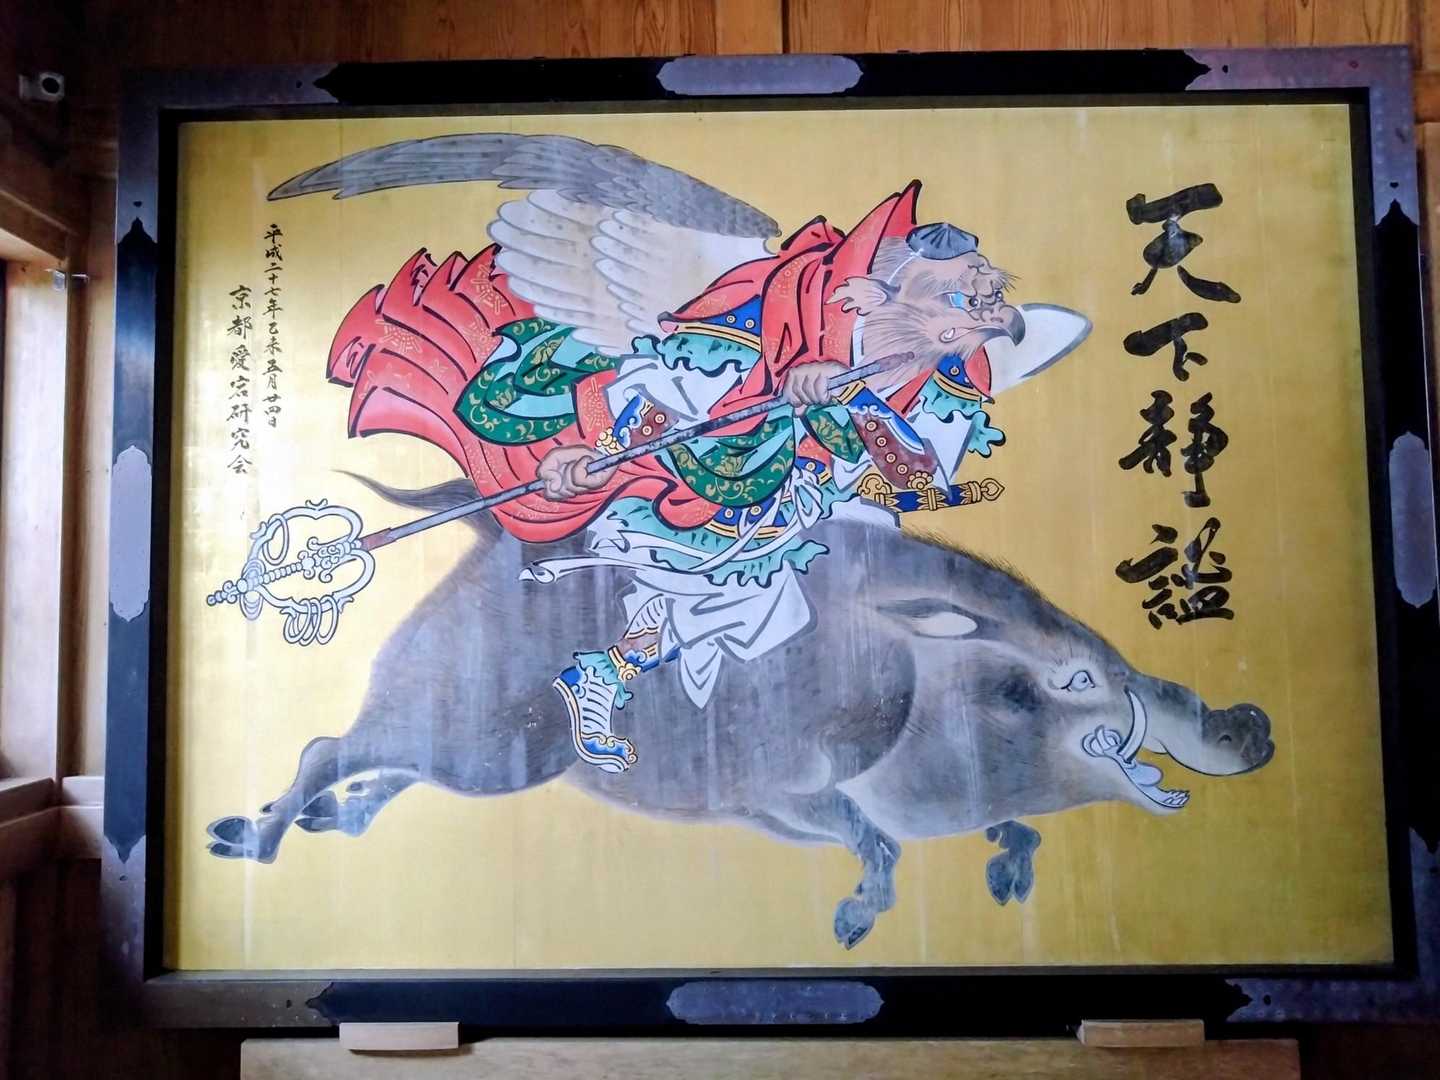 天下静謐
平成二十七年乙未五月廿四日
京都愛宕研究会